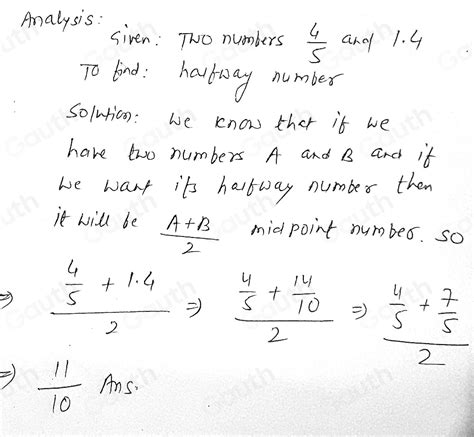 Analysis:
Given: Two numbers 4/5 and 1.4
To find: halfway number
Solution: we know that if we
have two numbers A and B and if
we want its halfway number then
it will be A+B/2 midpoint number. So
⇒ (4/5 + 1.4)/2 ⇒ (4/5 + 14/10)/2 ⇒ (4/5 + 7/5)/2
⇒ 11/10 Ans.
Gauth